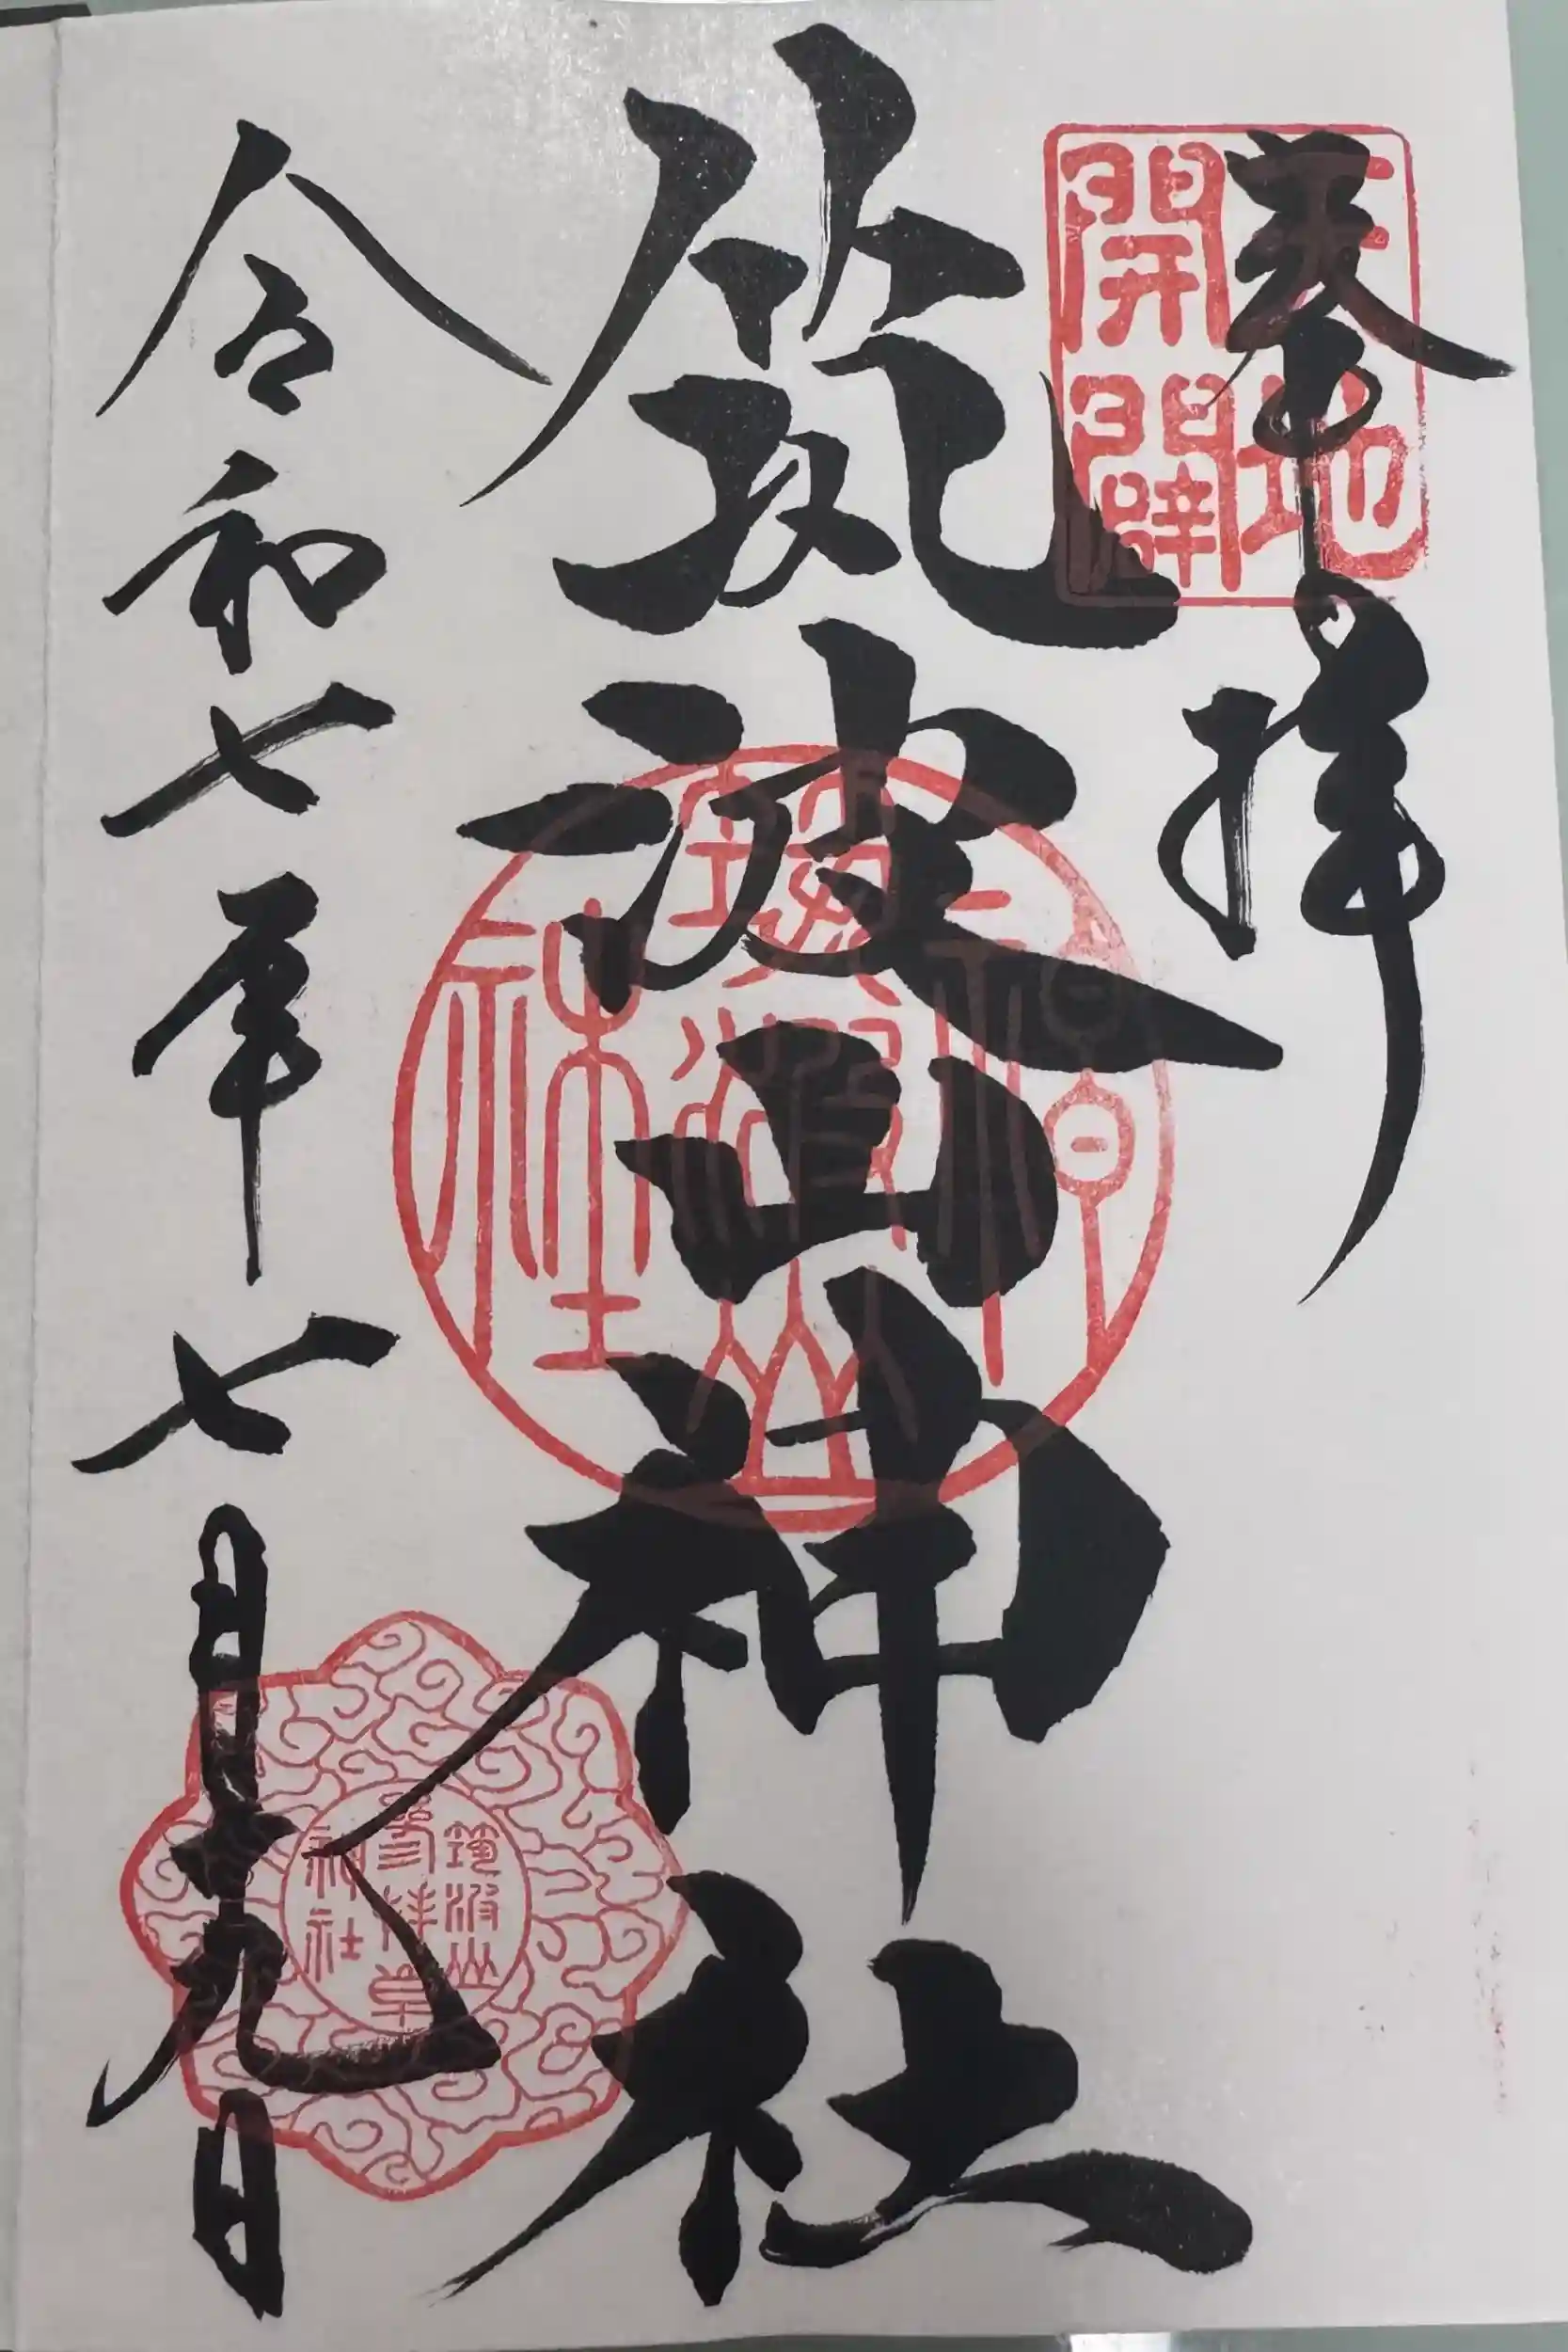 奉拝
天地
開闢
筑波山神社
令和七年七月十九日
筑波山
神社